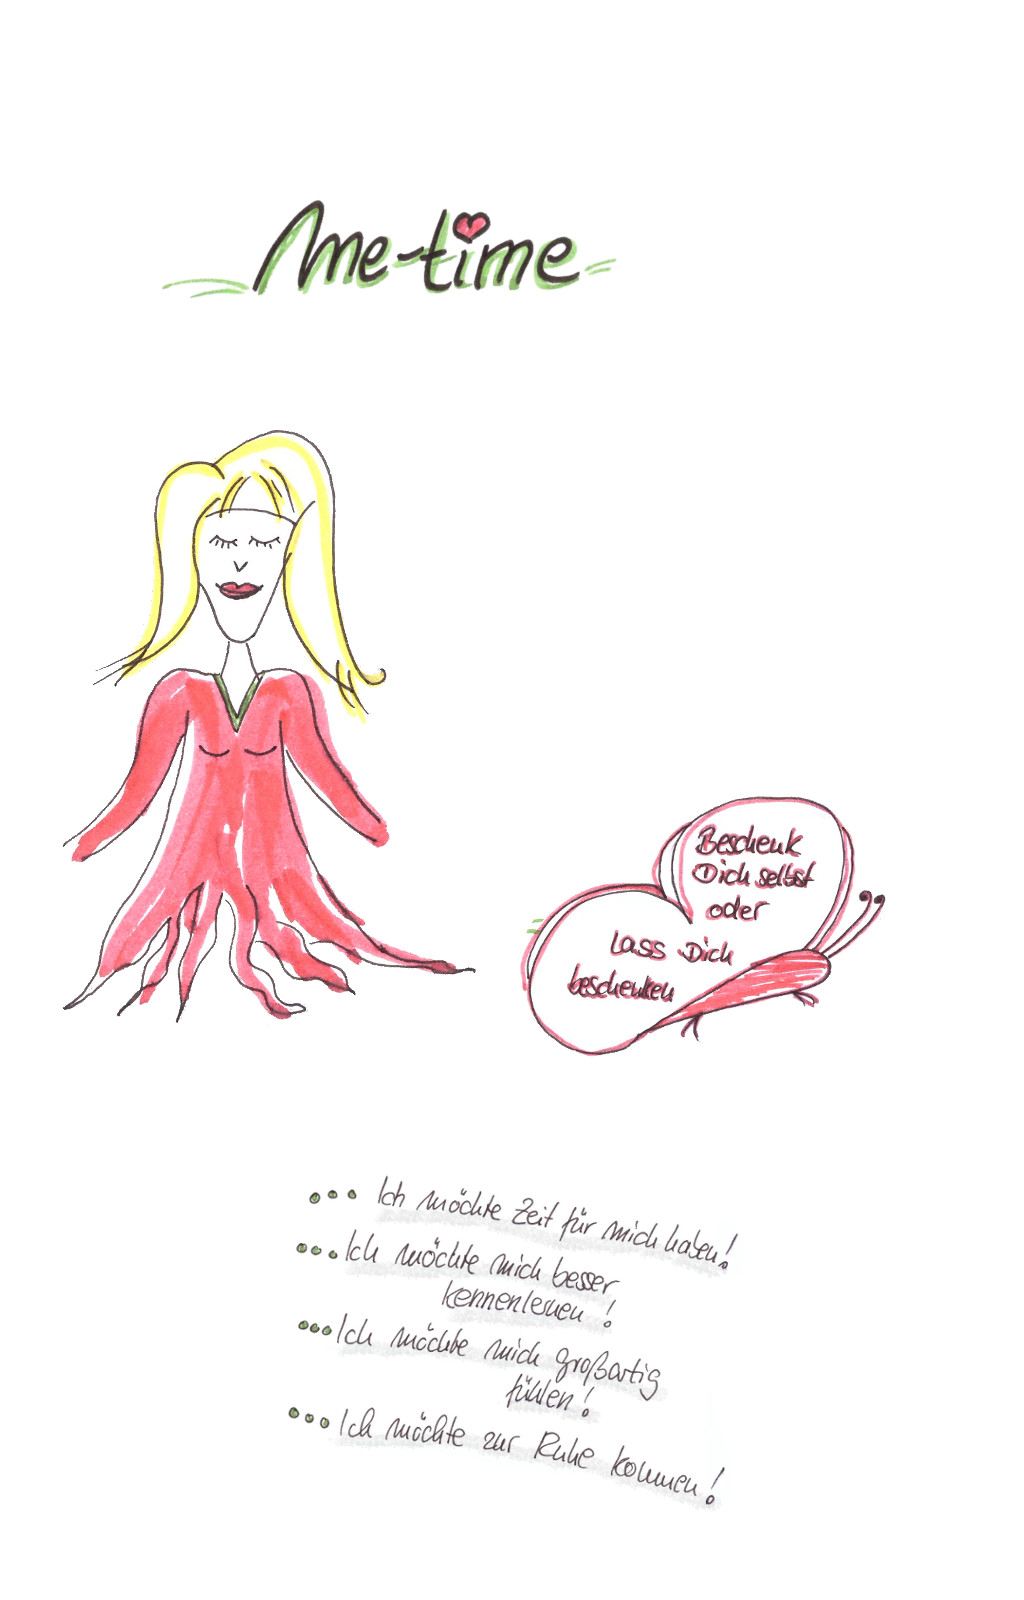 Me-time
Beschenk
Dich selbst
oder
lass Dich
beschenken
... Ich möchte Zeit für mich haben!
... Ich möchte mich besser
kennenlernen!
... Ich möchte mich großartig
fühlen!
... Ich möchte zur Ruhe kommen!